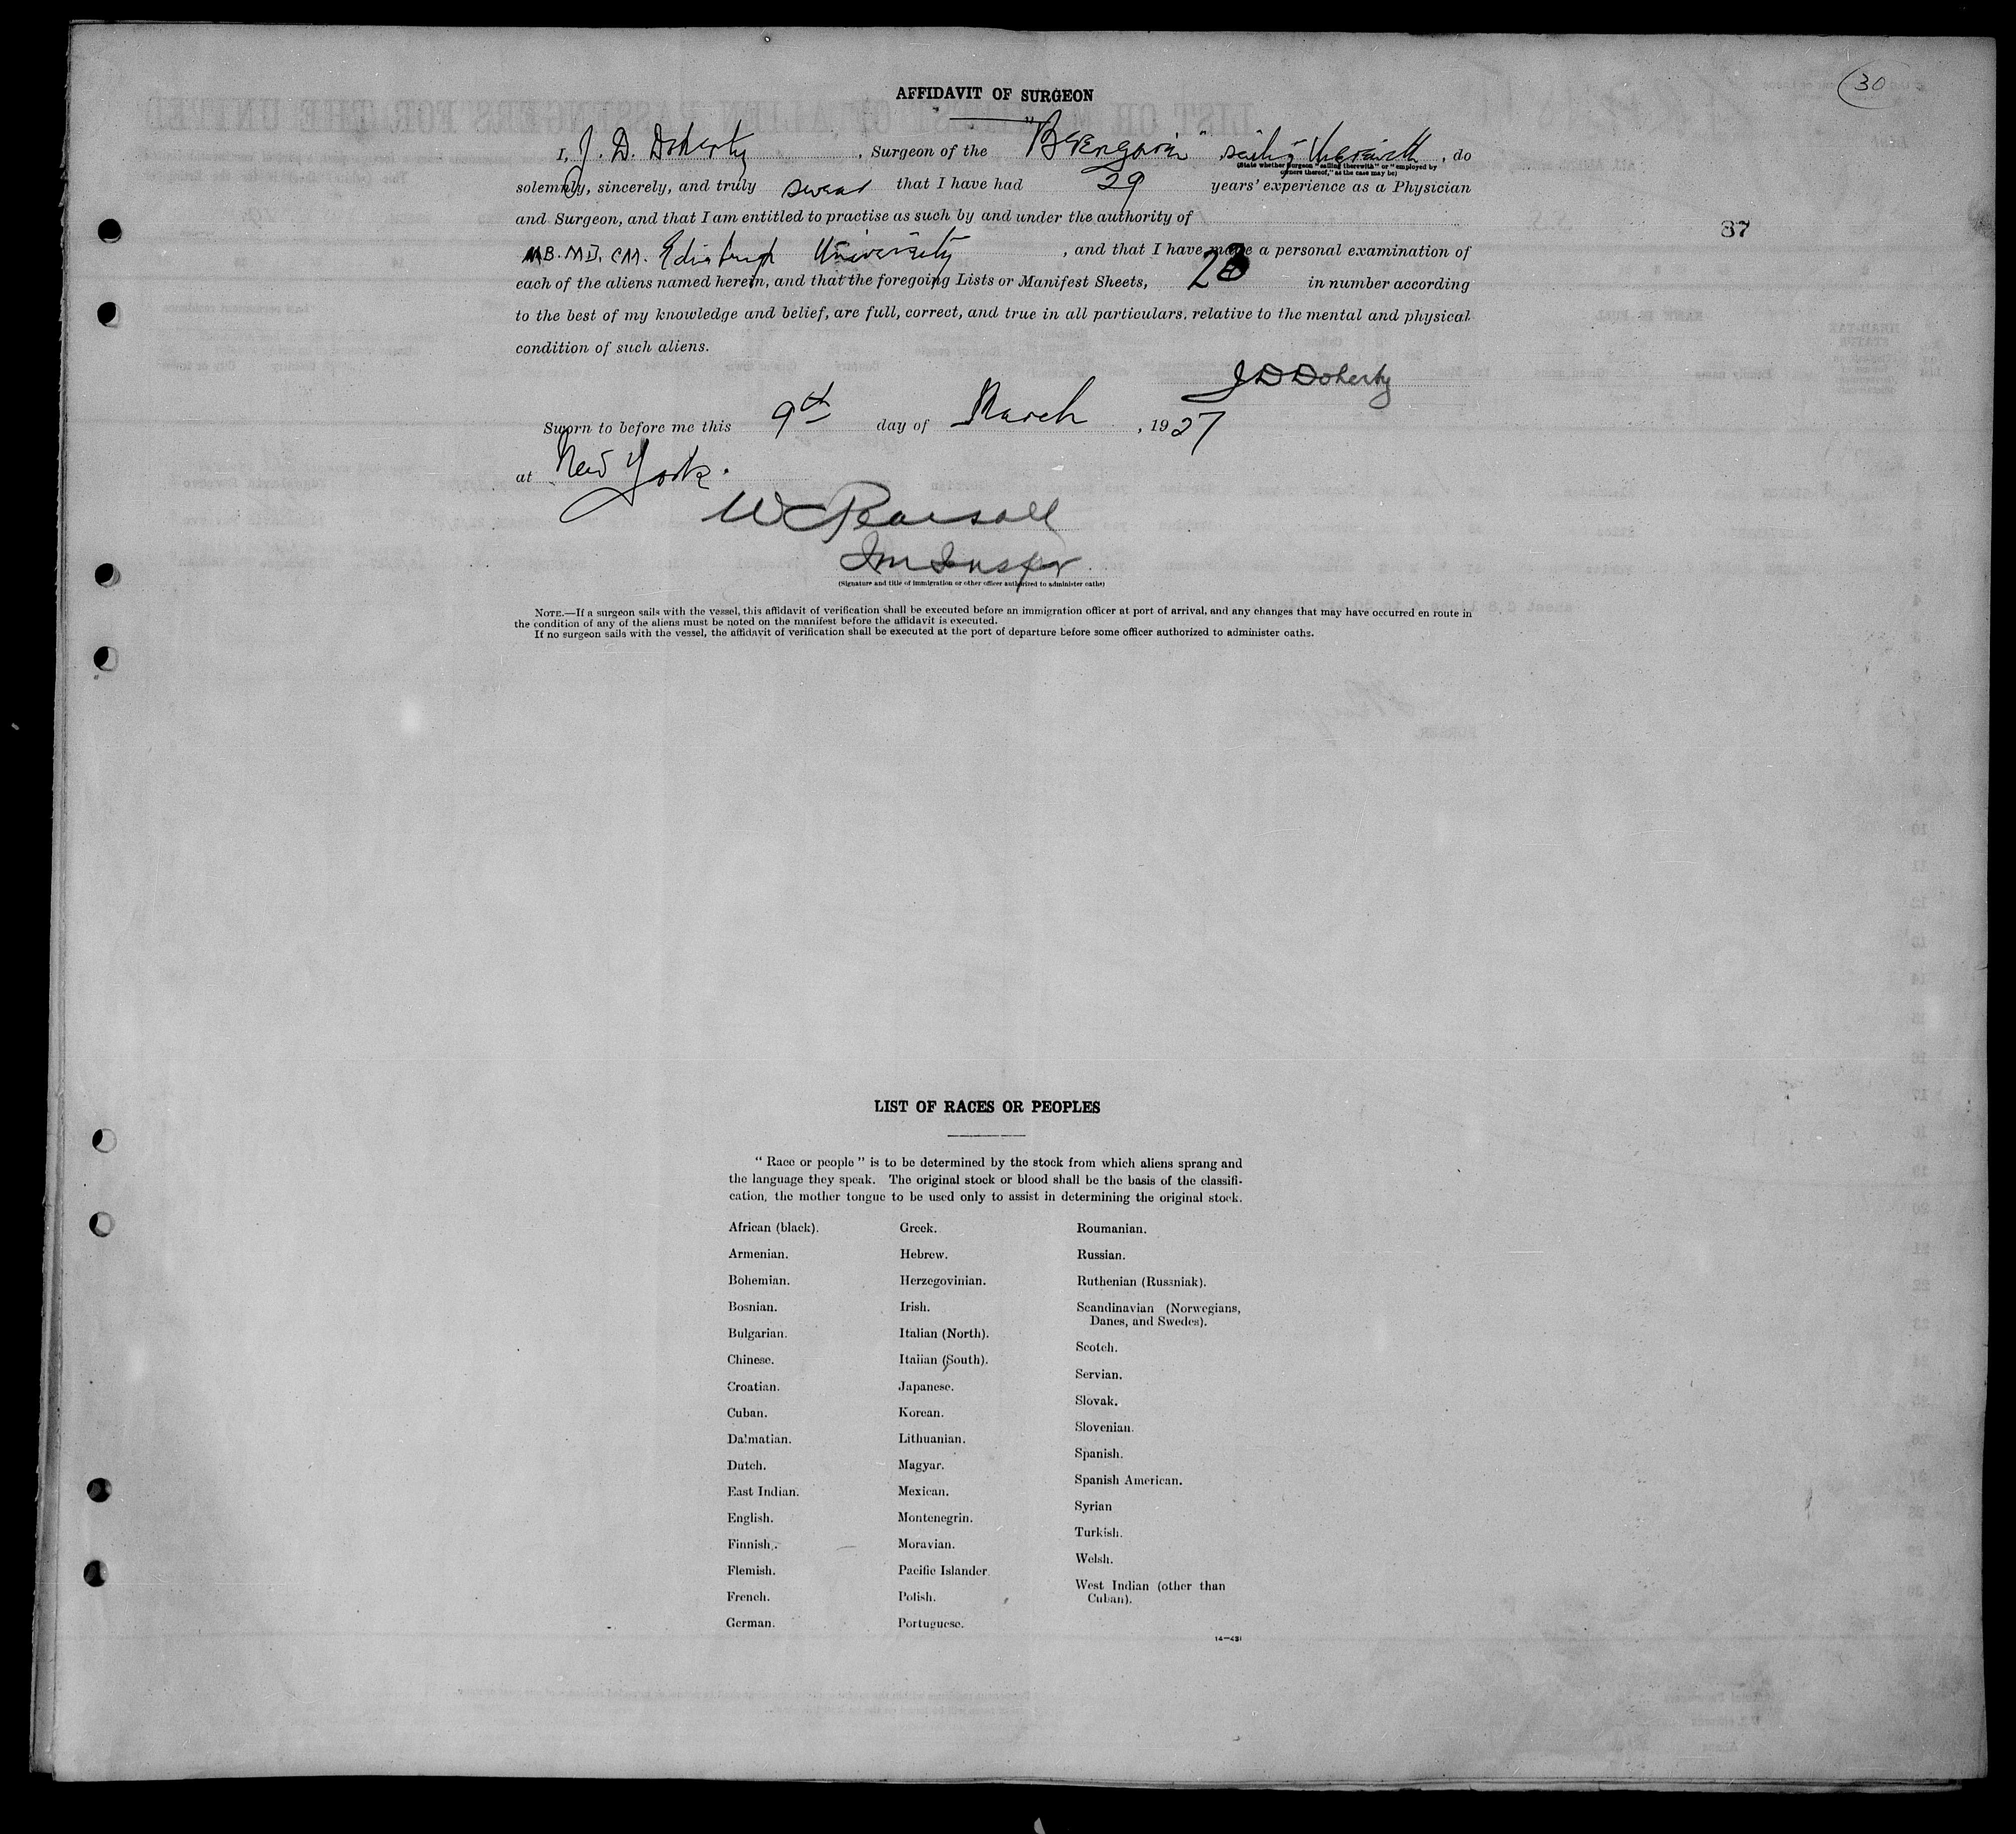 30
AFFIDAVIT OF SURGEON
I, J. D. Doherty, Surgeon of the "Berengaria" sailing therewith, do
(State whether surgeon "sailing therewith" or "employed by
owners thereof," as the case may be)
solemnly, sincerely, and truly swear that I have had 29 years' experience as a Physician
and Surgeon, and that I am entitled to practise as such by and under the authority of
87
MB. MD. CM. Edinburgh University, and that I have made a personal examination of
each of the aliens named herein, and that the foregoing Lists or Manifest Sheets, in number according
to the best of my knowledge and belief, are full, correct, and true in all particulars, relative to the mental and physical
condition of such aliens.
J D Doherty
Sworn to before me this 9th day of March, 1927
at New York.
W C Pearsall
Im Inspr
(Signature and title of immigration or other officer authorized to administer oaths)
NOTE.—If a surgeon sails with the vessel, this affidavit of verification shall be executed before an immigration officer at port of arrival, and any changes that may have occurred en route in
the condition of any of the aliens must be noted on the manifest before the affidavit is executed.
If no surgeon sails with the vessel, the affidavit of verification shall be executed at the port of departure before some officer authorized to administer oaths.
LIST OF RACES OR PEOPLES
"Race or people" is to be determined by the stock from which aliens sprang and
the language they speak. The original stock or blood shall be the basis of the classifi-
cation, the mother tongue to be used only to assist in determining the original stock.
African (black).
Armenian.
Bohemian.
Bosnian.
Bulgarian.
Chinese.
Croatian.
Cuban.
Dalmatian.
Dutch.
East Indian.
English.
Finnish.
Flemish.
French.
German.
Greek.
Hebrew.
Herzegovinian.
Irish.
Italian (North).
Italian (South).
Japanese.
Korean.
Lithuanian.
Magyar.
Mexican.
Montenegrin.
Moravian.
Pacific Islander
Polish.
Portuguese.
Roumanian.
Russian.
Ruthenian (Russniak).
Scandinavian (Norwegians,
Danes, and Swedes).
Scotch.
Servian.
Slovak.
Slovenian.
Spanish.
Spanish American.
Syrian
Turkish.
Welsh.
West Indian (other than
Cuban).
14—431